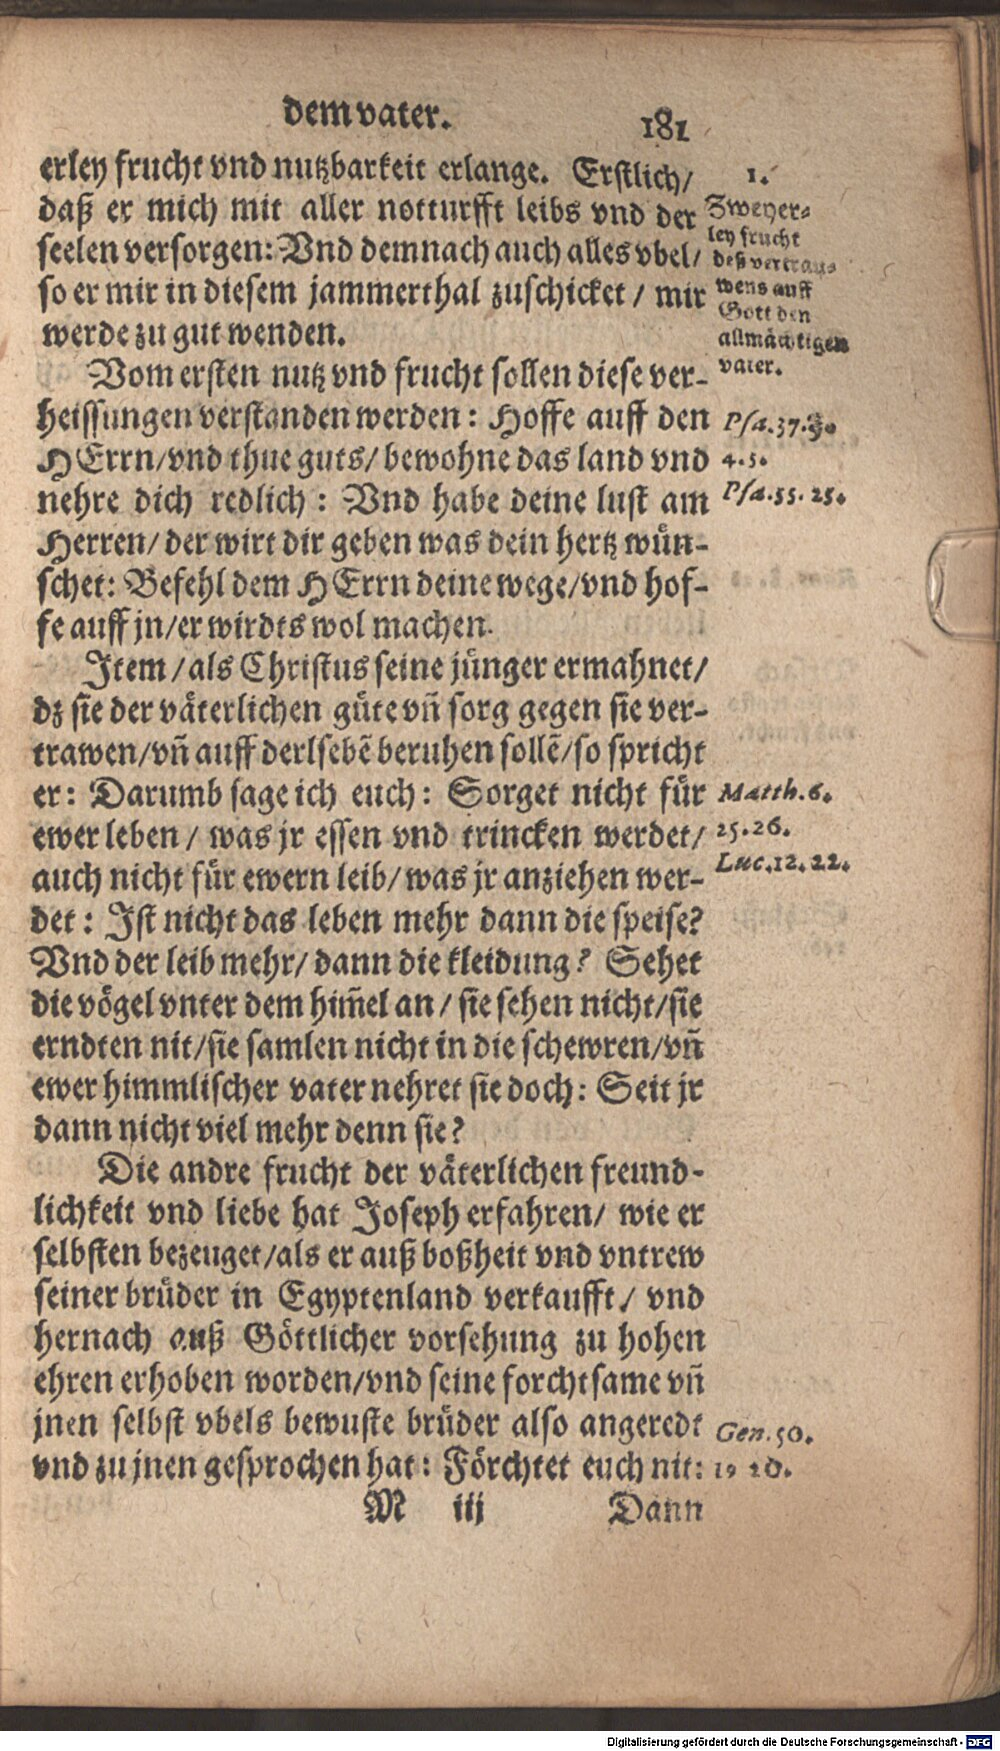 dem vater. 181
erley frucht vnd nutzbarkeit erlange. Erstlich/
daß er mich mit aller notturfft leibs vnd der
seelen versorgen: Vnd demnach auch alles vbel/
so er mir in diesem jammerthal zuschicket / mir
werde zu gut wenden.
1.
Zweyer-
ley frucht
deß vertrau-
wens auff
Gott den
allmächtigen
vater.
Vom ersten nutz vnd frucht sollen diese ver-
heissungen verstanden werden: Hoffe auff den
HErrn/vnd thue guts/ bewohne das land vnd
nehre dich redlich: Vnd habe deine lust am
Herren/ der wirt dir geben was dein hertz wün-
schet: Befehl dem HErrn deine wege/vnd hof-
fe auff jn/er wirdts wol machen.
Psa.37.3.
4.5.
Psa.55.25.
Item / als Christus seine jünger ermahnet/
dz sie der väterlichen güte vñ sorg gegen sie ver-
trawen/vñ auff derlsebẽ beruhen sollẽ/so spricht
er: Darumb sage ich euch: Sorget nicht für
ewer leben / was jr essen vnd trincken werdet/
auch nicht für ewern leib/ was jr anziehen wer-
det: Ist nicht das leben mehr dann die speise?
Vnd der leib mehr/ dann die kleidung? Sehet
die vögel vnter dem him̃el an / sie sehen nicht/sie
erndten nit/sie samlen nicht in die schewren/vñ
ewer himmlischer vater nehret sie doch: Seit jr
dann nicht viel mehr denn sie?
Matth.6.
25.26.
Luc.12.22.
Die andre frucht der väterlichen freund-
lichkeit vnd liebe hat Joseph erfahren/ wie er
selbsten bezeuget/als er auß boßheit vnd vntrew
seiner brüder in Egyptenland verkaufft/ vnd
hernach auß Göttlicher vorsehung zu hohen
ehren erhoben worden/vnd seine forchtsame vñ
jnen selbst vbels bewuste brüder also angeredt
vnd zu jnen gesprochen hat: Förchtet euch nit:
Gen.50.
19 20.
M iij Dann
Digitalisierung gefördert durch die Deutsche Forschungsgemeinschaft - DFG